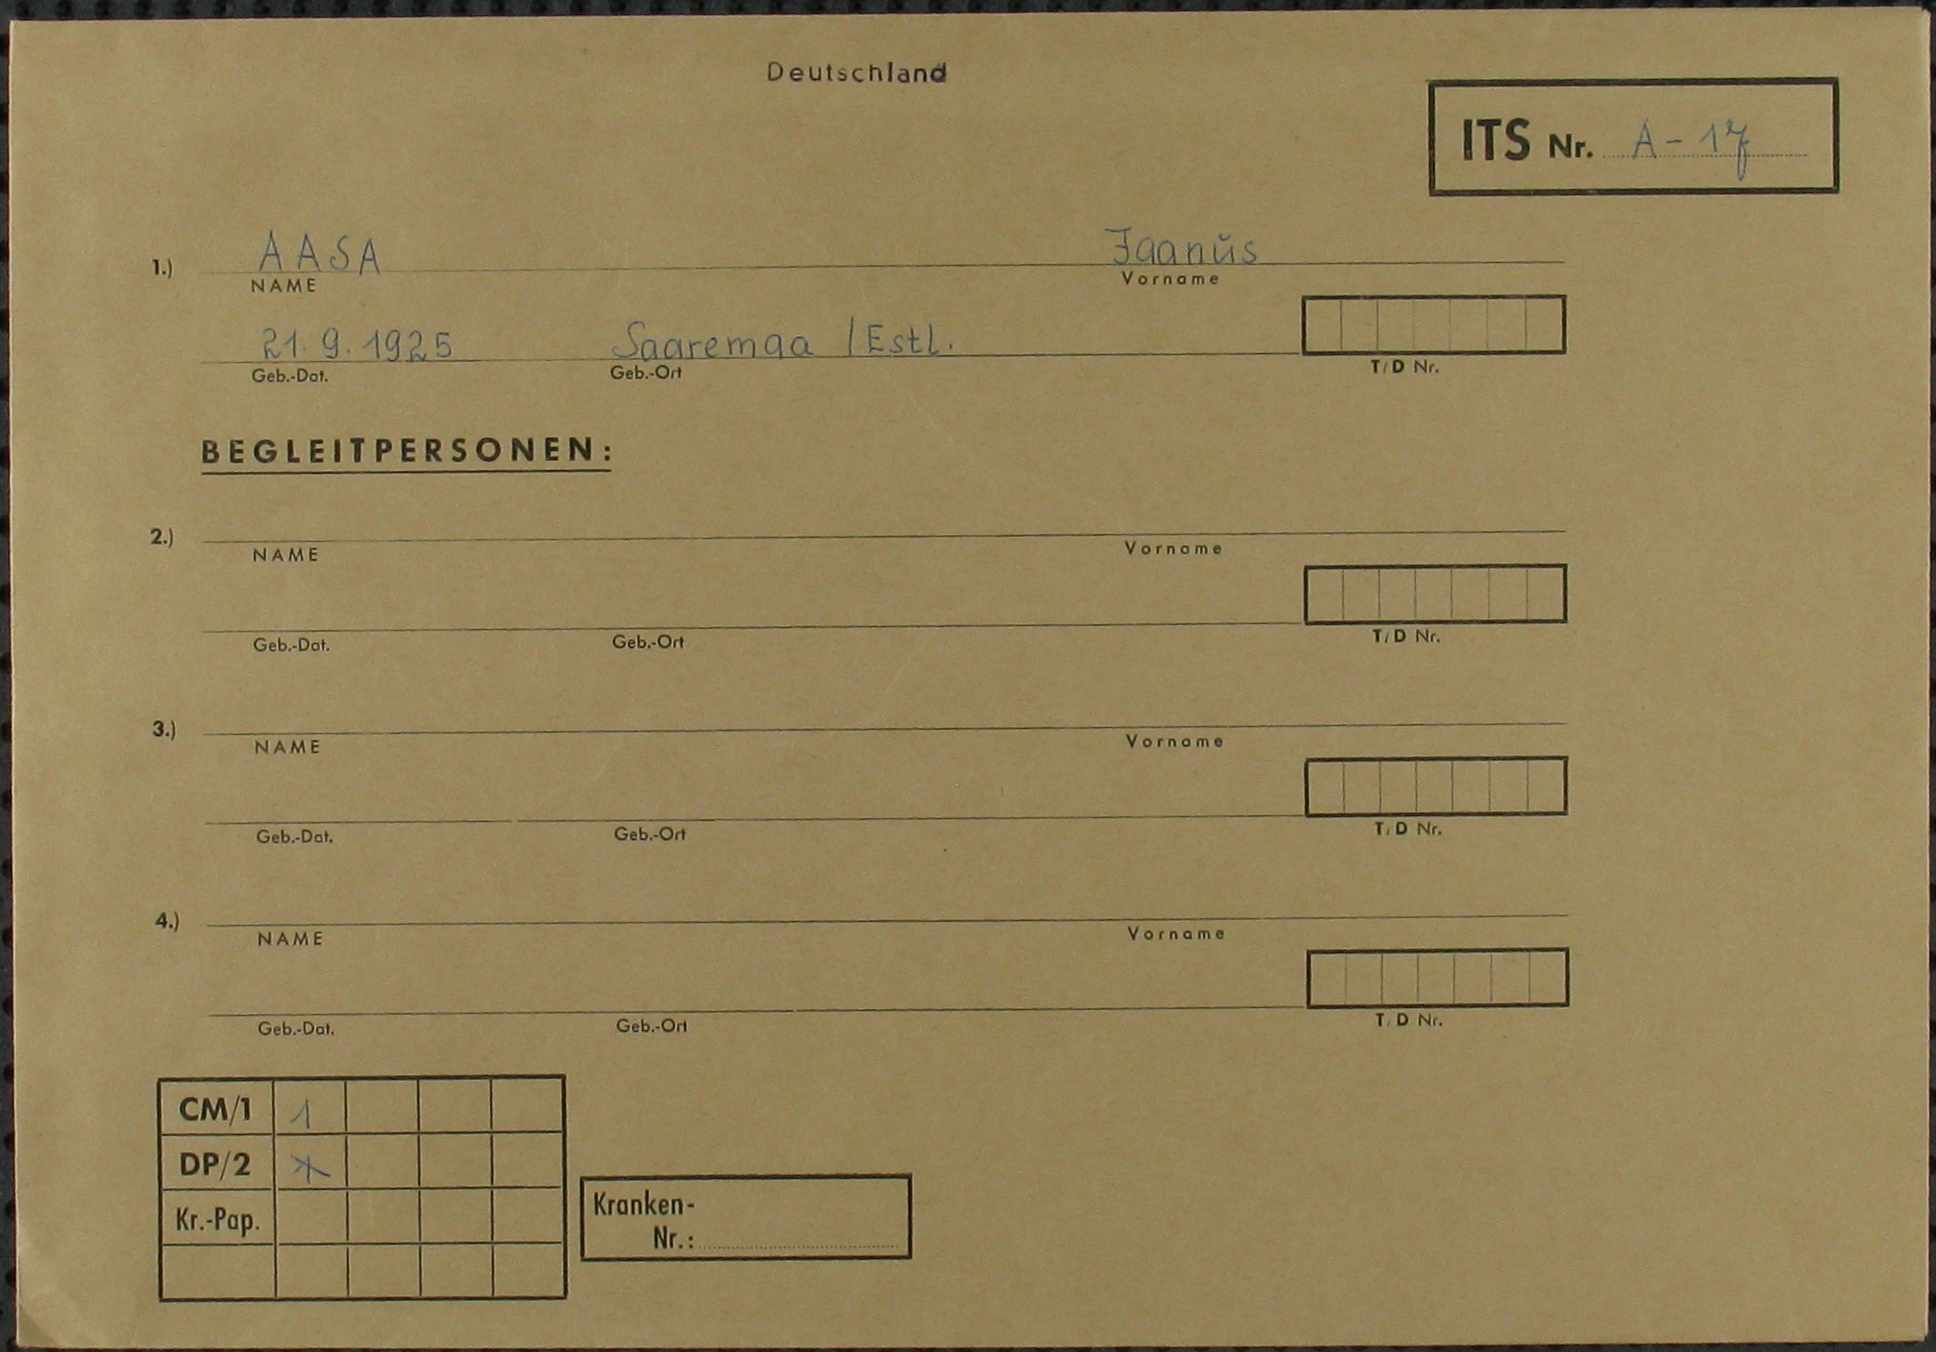 Deutschland
ITS Nr. A-17
1.) AASA Jaanŭs
NAME Vorname
21.9.1925 Saaremaa /Estl.
Geb.-Dat. Geb.-Ort T/D Nr.
BEGLEITPERSONEN:
2.)
NAME Vorname
Geb.-Dat. Geb.-Ort T/D Nr.
3.)
NAME Vorname
Geb.-Dat. Geb.-Ort T/D Nr.
4.)
NAME Vorname
Geb.-Dat. Geb.-Ort T/D Nr.
CM/1 1
DP/2 x
Kr.-Pap.
Kranken-
Nr.: